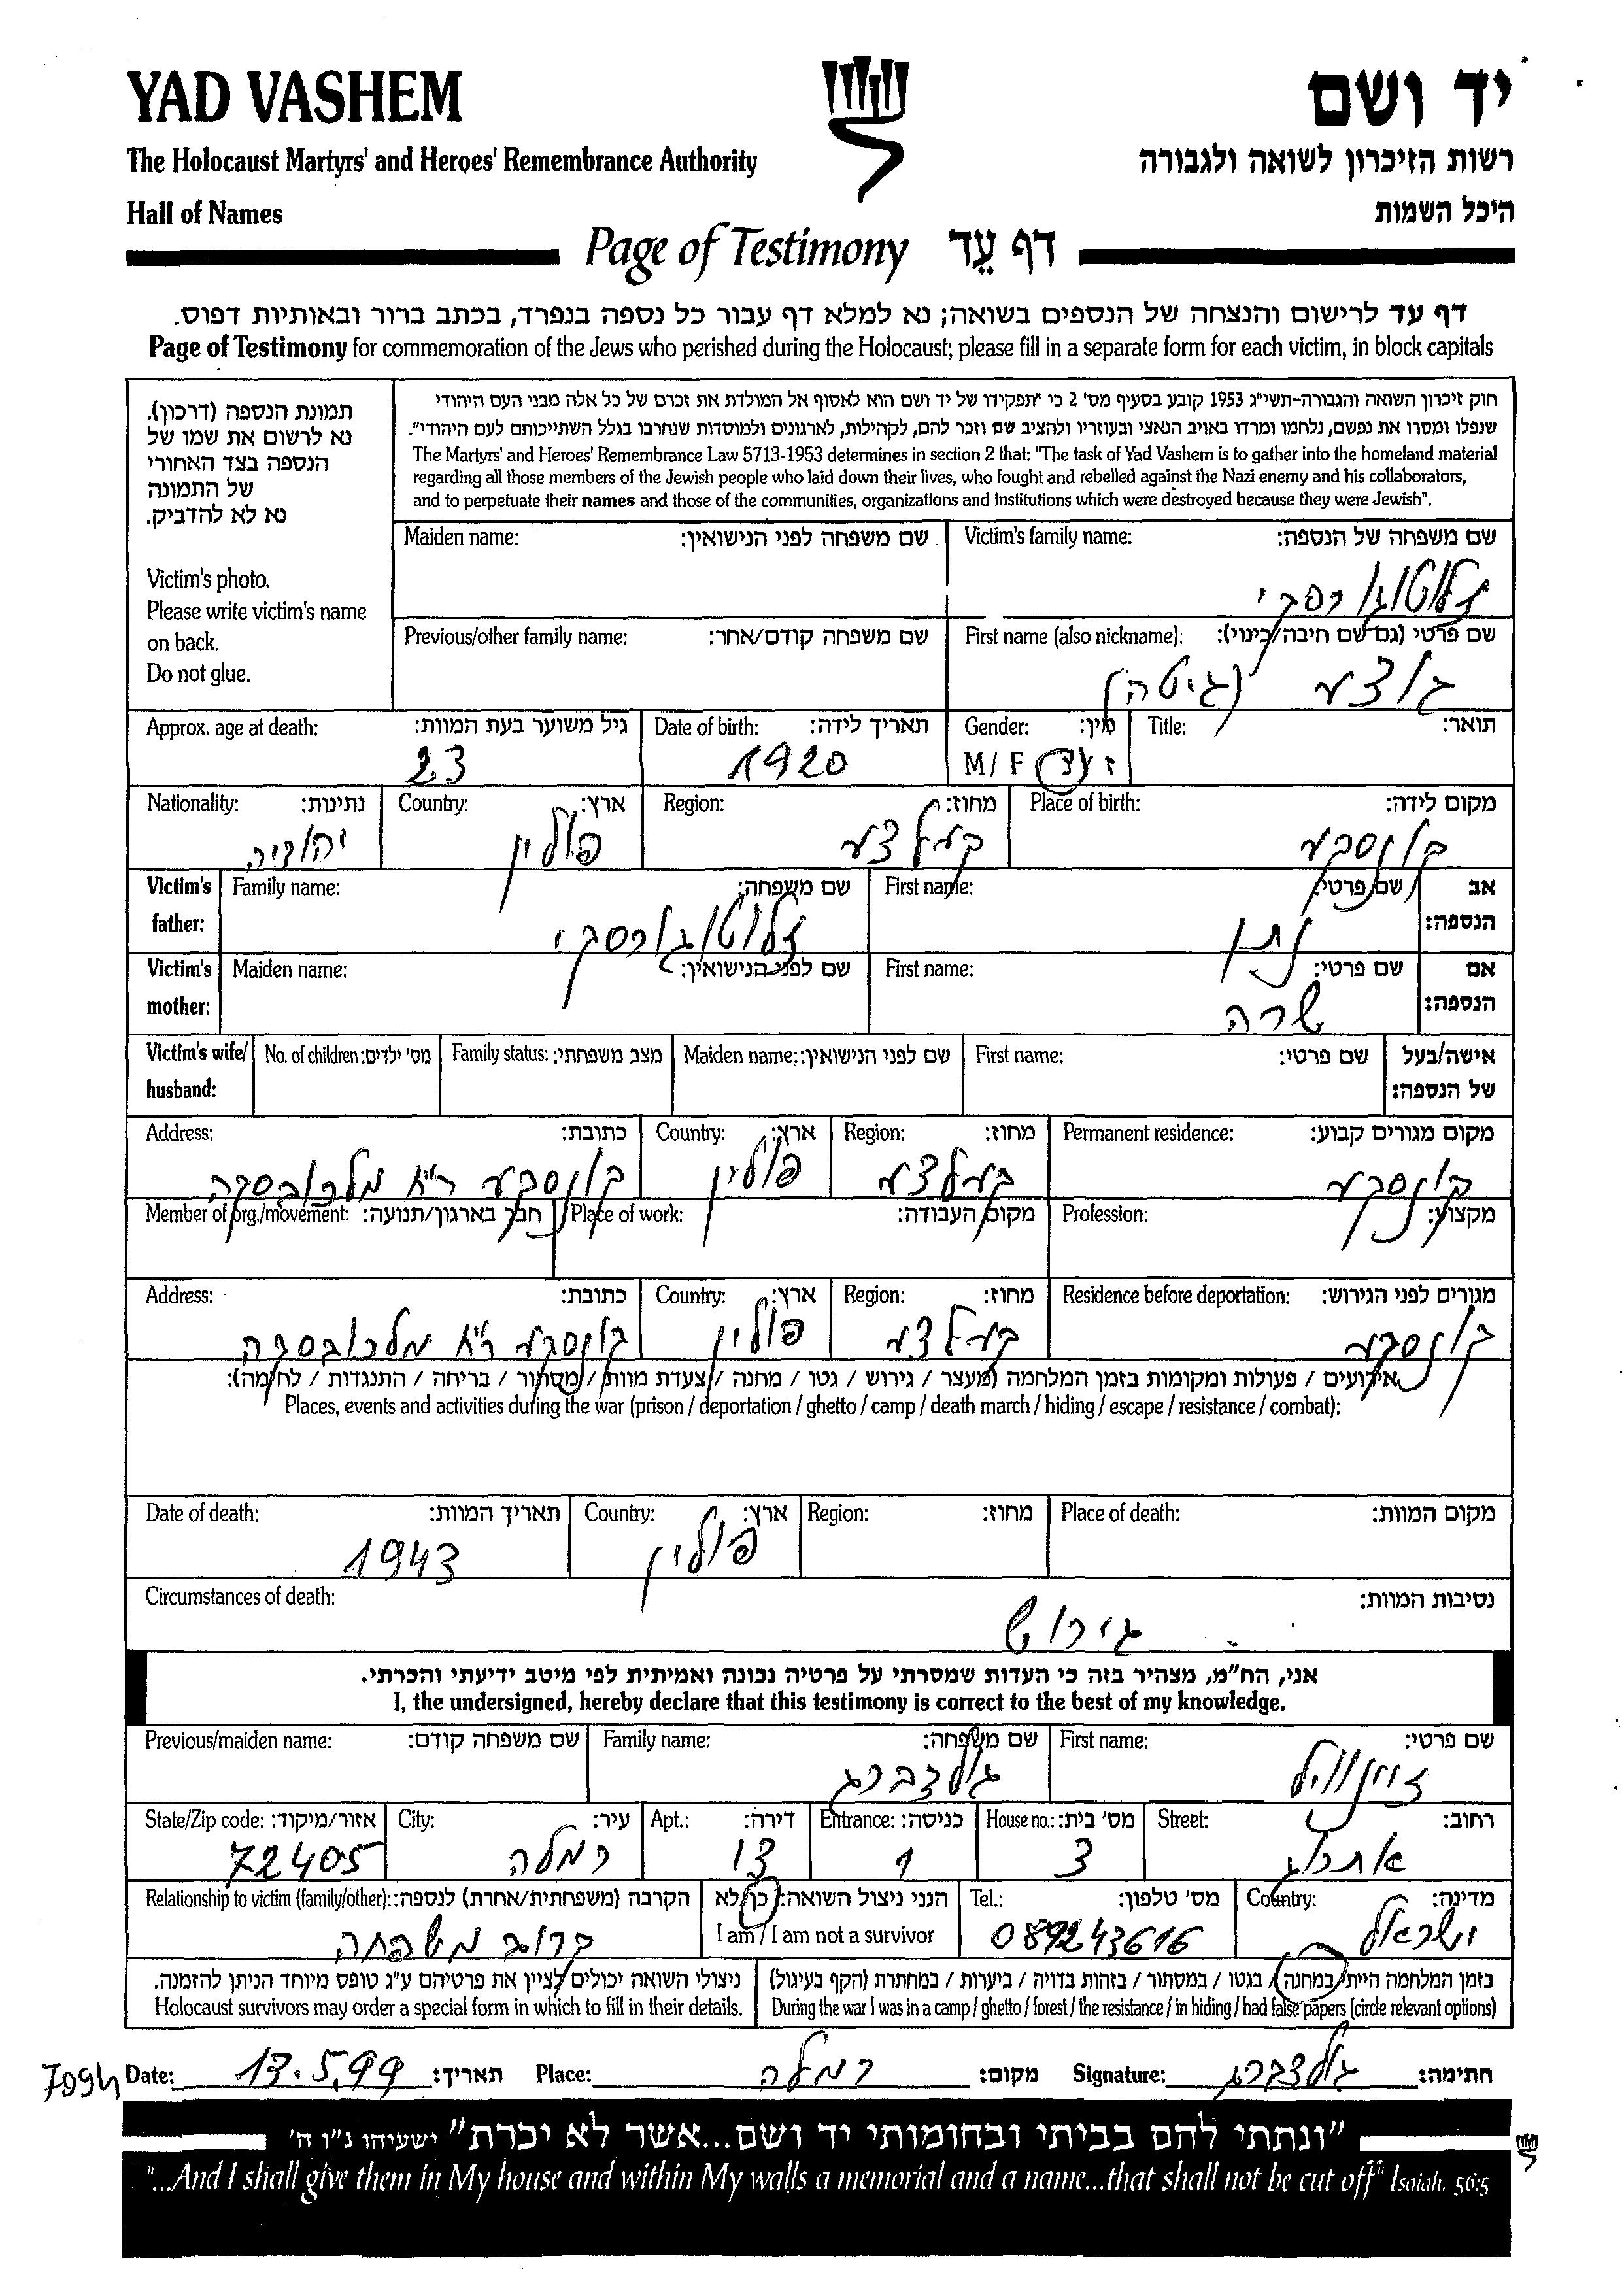 YAD VASHEM
יד ושם
The Holocaust Martyrs' and Heroes' Remembrance Authority
רשות הזיכרון לשואה ולגבורה
Hall of Names
היכל השמות
Page of Testimony דף עֵד
דף עד לרישום והנצחה של הנספים בשואה; נא למלא דף עבור כל נספה בנפרד, בכתב ברור ובאותיות דפוס.
Page of Testimony for commemoration of the Jews who perished during the Holocaust; please fill in a separate form for each victim, in block capitals
תמונת הנספה (דרכון).
נא לרשום את שמו של
הנספה בצד האחורי
של התמונה
נא לא להדביק.
Victim's photo.
Please write victim's name
on back.
Do not glue.
חוק זיכרון השואה והגבורה-תשי״ג 1953 קובע בסעיף מס' 2 כי ״תפקידו של יד ושם הוא לאסוף אל המולדת את זכרם של כל אלה מבני העם היהודי
שנפלו ומסרו את נפשם, נלחמו ומרדו באויב הנאצי ובעוזריו ולהציב שם וזכר להם, לקהילות, לארגונים ולמוסדות שנחרבו בגלל השתייכותם לעם היהודי״.
The Martyrs' and Heroes' Remembrance Law 5713-1953 determines in section 2 that: "The task of Yad Vashem is to gather into the homeland material
regarding all those members of the Jewish people who laid down their lives, who fought and rebelled against the Nazi enemy and his collaborators,
and to perpetuate their names and those of the communities, organizations and institutions which were destroyed because they were Jewish".
Maiden name: שם משפחה לפני הנישואין: Victim's family name: שם משפחה של הנספה:
זלוטוגורסקי
Previous/other family name: שם משפחה קודם/אחר: First name (also nickname): שם פרטי (גם שם חיבה/כינוי):
(גיטה)
Approx. age at death: גיל משוער בעת המוות: Date of birth: תאריך לידה: Gender: מין: Title: תואר:
23 1920 M/ F ז / נ
Nationality: נתינות: Country: ארץ: Region: מחוז: Place of birth: מקום לידה:
יהודיה פולין קעלצע קונסקע
Victim's father: Family name: שם משפחה: First name: שם פרטי: אב הנספה:
זלוטוגורסקי נתן
Victim's mother: Maiden name: שם לפני הנישואין: First name: שם פרטי: אם הנספה:
שרה
Victim's wife/ husband: No. of children: מס' ילדים: Family status: מצב משפחתי: Maiden name: שם לפני הנישואין: First name: שם פרטי: אישה/בעל של הנספה:
Address: כתובת: Country: ארץ: Region: מחוז: Permanent residence: מקום מגורים קבוע:
קונסקע מלכובסקה פולין קעלצע קונסקע
Member of org./movement: חבר בארגון/תנועה: Place of work: מקום העבודה: Profession: מקצוע:
Address: כתובת: Country: ארץ: Region: מחוז: Residence before deportation: מגורים לפני הגירוש:
קונסקע מלכובסקה פולין קעלצע קונסקע
אירועים / פעולות ומקומות בזמן המלחמה (מעצר / גירוש / גטו / מחנה / צעדת מוות / מסתור / בריחה / התנגדות / לחימה):
Places, events and activities during the war (prison / deportation / ghetto / camp / death march / hiding / escape / resistance / combat):
Date of death: תאריך המוות: Country: ארץ: Region: מחוז: Place of death: מקום המוות:
1943 פולין
Circumstances of death: נסיבות המוות:
גירוש
אני, הח״מ, מצהיר בזה כי העדות שמסרתי על פרטיה נכונה ואמיתית לפי מיטב ידיעתי והכרתי.
I, the undersigned, hereby declare that this testimony is correct to the best of my knowledge.
Previous/maiden name: שם משפחה קודם: Family name: שם משפחה: First name: שם פרטי:
גולדברג זיינוויל
State/Zip code: אזור/מיקוד: City: עיר: Apt.: דירה: Entrance: כניסה: House no.: מס' בית: Street: רחוב:
72405 רמלה 13 1 3 אתרוג
Relationship to victim (family/other): הקרבה (משפחתית/אחרת) לנספה: הנני ניצול השואה: כן/לא Tel.: מס' טלפון: Country: מדינה:
קרוב משפחה I am / I am not a survivor 089243616 ישראל
ניצולי השואה יכולים לציין את פרטיהם ע״ג טופס מיוחד הניתן להזמנה.
Holocaust survivors may order a special form in which to fill in their details.
בזמן המלחמה הייתי במחנה / בגטו / במסתור / בזהות בדויה / ביערות / במחתרת (הקף בעיגול)
During the war I was in a camp / ghetto / forest / the resistance / in hiding / had false papers (circle relevant options)
Date: 13.5.99 תאריך: Place: רמלה מקום: Signature: גולדברג חתימה:
"ונתתי להם בביתי ובחומותי יד ושם...אשר לא יכרת" ישעיהו נ"ו ה'
"...And I shall give them in My house and within My walls a memorial and a name...that shall not be cut off" Isaiah. 56:5